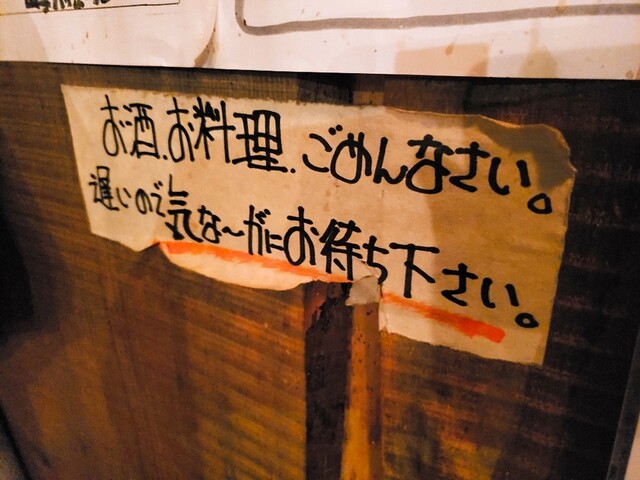 お酒、お料理、ごめんなさい。
遅いので気な〜がにお待ち下さい。